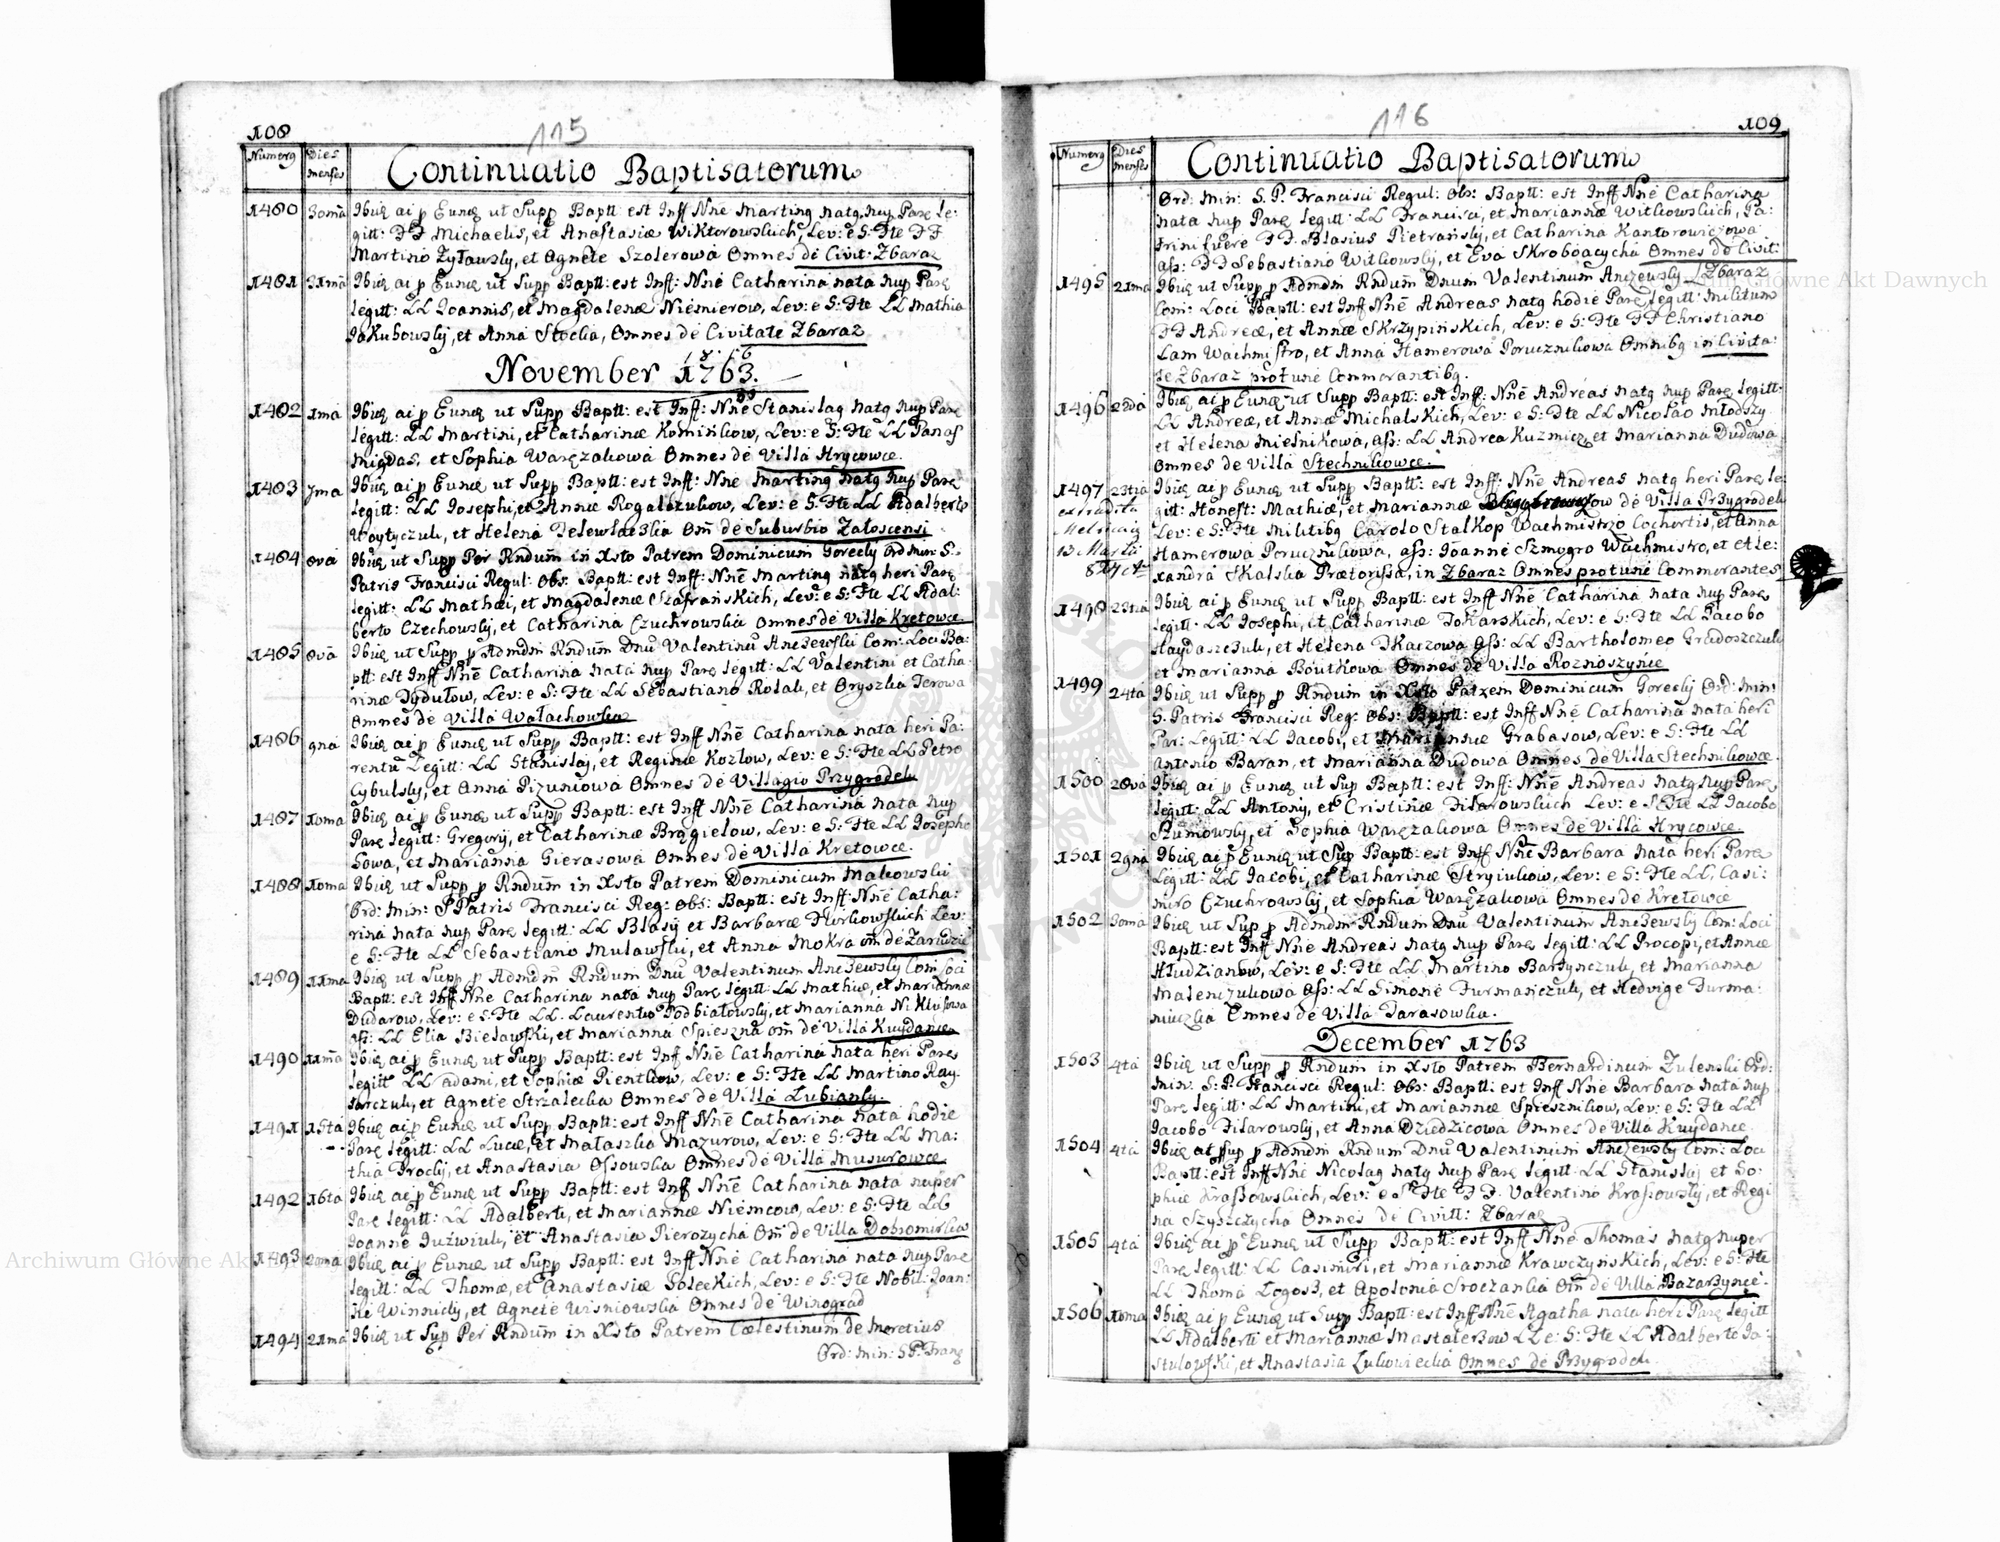 108
115
Numerg
Dies
menses
Continuatio Baptisatorum
1480 30ma Ibidę ai p Eundę ut Supp Baptt: est Inff Nnē Marting natg nup Parę le:
gitt: FF Michaelis, et Anastasiæ Wiktorowskich, Lev: e S: Fte FF
Martino Zyławsky, et Agnete Szolerowa Omnes de Civit: Zbaraz
1481 31ma Ibidę ai p Eundę ut Supp Baptt: est Inff: Nnē Catharina nata nup Parę
legitt: LL Joannis, et Magdalenæ Niesmierow, Lev: e S: Fte LL Mathia
Jakubowsky, et Anna Stocka, Omnes de Civitate Zbaraz
November 1763.
1482 1ma Ibidę ai p Eundę ut Supp Baptt: est Inff: Nnē Stanislag natg nup Parę
legitt: LL Martini, et Catharinæ Kominkow, Lev: e S: Fte LL Panas
Migdas, et Sophia Waręzakowa Omnes de Villa Hrycowce.
1483 7ma Ibidę ai p Eundę ut Supp Baptt: est Inff: Nnē Marting natg nup Parę
legitt: LL Josephi, et Annæ Rogalczukow, Lev: e S: Fte LL Adalberto
Woytyczuk, et Helena Delewlaska Om de Suburbio Załoscensi
1484 8va Ibidę ut Supp Per Rndum in Xsto Patrem Dominicum Gorecky Ord Min: S:
Patris Francisci Regul: Obs: Baptt: est Inff: Nnē Marting natg heri Parę
legitt: LL Mathæi, et Magdalenæ Szafrańskich, Lev: e S: Fte LL Adal:
berto Czechowsky, et Catharina Czuchrowska Omnes de Villa Kretowce.
1485 8va Ibidę ut Supp p Admdm Rndum Dnu Valentinu Anezewski Com: Loci Ba:
ptt: est Inff: Nnē Catharina nata nup Parę legitt: LL Valentini et Catha:
rinæ Dydułow, Lev: e S: Fte LL Sebastiano Rolak, et Oryszka Terowa
Omnes de Villa Wałachowka
1486 9na Ibidę ai p Eundę ut Supp Baptt: est Inff Nnē Catharina nata heri Pa:
rentu Legitt: LL Stanislaj, et Reginæ Kozłow, Lev: e S: Fte LL Petro
Cybulsky, et Anna Pizuniowa Omnes de Villagio Przygrodek
1487 10ma Ibidę ai p Eundę ut Supp Baptt: est Inff Nnē Catharina nata nup
Parę legitt: Gregorij, et Catharinæ Brągielow, Lev: e S: Fte LL Josepho
Sowa, et Marianna Gierasowa Omnes de Villa Kretowce.
1488 10ma Ibidę ut Supp p Rndum in Xsto Patrem Dominicum Makowski
Ord: Min: S Patris Francisci Reg: Obs: Baptt: est Inff: Nnē Catha:
rina nata nup Parę legitt: LL Blasij et Barbaræ Lev:
e S: Fte LL Sebastiano Mulawski, et Anna Mokra om de Zarudzie
1489 11ma Ibidę ut Supp p Admdm Rndum Dnu Valentinum Anezewsky Com Loci
Baptt: est Inff Nnē Catharina nata nup Parę legitt: LL Mathiæ, et Mariannæ
Dudarow, Lev: e S: Fte LL. Laurentio Podbiałowsky, et Marianna N: Klusowa
ass: LL Elia Bielawski, et Marianna Spieszna om de Villa Kuydance
1490 11ma Ibidę ai p Eundę ut Supp Baptt: est Inff Nnē Catharina nata heri Parę
legitt LL Adami, et Sophiæ Pientkow, Lev: e S: Fte LL Martino Kay.
tarczuk, et Agnete Strzalecka Omnes de Villa Lubianky.
1491 15ta Ibidę ai p Eundę ut Supp Baptt: est Inff Nnē Catharina nata hodie
Parę legitt: LL Lucæ, et Małaszka Mazurow, Lev: e S: Fte LL Ma:
thia Procky, et Anastasia Ossowska Omnes de Villa Musurowce
1492 16ta Ibidę ai p Eundę ut Supp Baptt: est Inff Nnē Catharina nata nuper
Parę legitt: LL Adalberti, et Mariannæ Niemcow, Lev: e S: Fte LL
Joanne Juzwiuk, et Anastasia Pierozycha Om de Villa Dobromirka
1493 20ma Ibidę ai p Eundę ut Supp Baptt: est Inff Nnē Catharina nata nup Parę
legitt: LL Thomæ, et Anastasiæ Soleckich, Lev: e S: Fte Nobil: Joan:
ne Winnicky, et Agnete Wisniowska Omnes de Winograd
1494 21ma Ibidę ut Sup Per Rndum in Xsto Patrem Cælestinum de Meretius
Ord: Min: S P: Franc
116
109
Numerg
Dies
menses
Continuatio Baptisatorum
Ord: Min: S. P. Francisci Regul: Obs: Baptt: est Inff Nnē Catharina
nata nup Parę legitt: LL Francisci, et Mariannæ Witkowskich, Pa:
trini fuere FF. Blasius Pietrańsky, et Catharina Kantorowiczowa
ass: FF Sebastiano Witkowsky, et Eva Skroboacycha Omnes de Civit:
Zbaraz
1495 21ma Ibidę ut Supp p Admdm Rndum Dnum Valentinum Anezewsky
Com: Loci Baptt: est Inff Nnē Andreas natg hodie Parę legitt: Militum
FF Andreæ, et Annæ Skrzypińskich, Lev: e S: Fte FF Christiano
Lam Wachmistro, et Anna Hamerowa Porucznikowa Omnibg in Civita:
te Zbaraz protunc Commorantibg.
1496 23da Ibidę ai p Eundę ut Supp Baptt: est Inff: Nnē Andreas natg nup Parę legitt:
LL Andreæ, et Annæ Michalskich, Lev: e S: Fte LL Nicolao Młodszy
et Helena Mielnikowa, ass: LL Andrea Kuzmicz et Marianna Dudowa
Omnes de Villa Stechnikowce.
1497 23tia Ibidę ai p Eundę ut Supp Baptt: est Inff: Nnē Andreas natg heri Parę le:
extradita
gitt: Honest: Mathiæ, et Mariannæ de Villa Przygrodek
Lev: e S: Fte Militibg Carolo Stalkop Wachmistrzo Cochortis, et Anna
13 Martii
Hamerowa Porucznikowa, ass: Joanne Szmogro Wachmistro, et Ale:
xandra Skalska Prætorissa, in Zbaraz Omnes protunc Commorantes
1498 23tia Ibidę ai p Eundę ut Supp Baptt: est Inff Nnē Catharina nata nup Parę
legitt: LL Josephi, et Catharinæ Tokarskich, Lev: e S: Fte LL Jacobo
Haydaszczuk, et Helena Tkaczowa ass: LL Bartholomeo Gradoszczuk
et Marianna Boutkowa Omnes de Villa Roznoszynce
1499 24ta Ibidę ut Supp p Rndum in Xsto Patrem Dominicum Gorecky Ord: Min:
S. Patris Francisci Reg: Obs: Baptt: est Inff Nnē Catharina nata heri
Par: Legitt: LL Jacobi, et Mariannæ Grabasow, Lev: e S: Fte LL
Antonio Baran, et Marianna Dudowa Omnes de Villa Stechnikowce
1500 28va Ibidę ai p Eundę ut Sup Baptt: est Inff: Nnē Andreas natg nup Parę
legitt: LL Antonij, et Cristinæ Filarowskich Lev: e S: Fte LL Jacobo
Szumowsky, et Sophia Waręzakowa Omnes de Villa Hrycowce.
1501 29na Ibidę ai p Eundę ut Sup Baptt: est Inff Nnē Barbara nata heri Parę
Legitt: LL Jacobi, et Catharinæ Stryiukow, Lev: e S: Fte LL, Casi:
miro Czuchrowsky, et Sophia Waręzakowa Omnes de Kretowce
1502 30ma Ibidę ut Sup p Admdm Rndum Dnu Valentinum Anezewsky Com: Loci
Baptt: est Inff Nnē Andreas natg nup Parę legitt: LL Procopi, et Annæ
Hludzianow, Lev: e S: Fte LL Martino Bartynczuk, et Marianna
Malenczukowa ass: LL Simone Furmanczuk, et Hedvige Furma:
niuczka Omnes de Villa Tarasowka.
December 1763
1503 4ta Ibidę ut Supp p Rndum in Xsto Patrem Bernardinum Zulenski Ord:
Min: S: P. Francisci Regul: Obs: Baptt: est Inff Nnē Barbara nata nup
Parę legitt: LL Martini, et Mariannæ Spiesznikow, Lev: e S: Fte LL
Jacobo Filarowsky, et Anna Dziedzicowa Omnes de Villa Kuydance
1504 4ta Ibidę ut Sup p Admdm Rndum Dnu Valentinum Anezewsky Com: Loci
Baptt: est Inff Nnē Nicolag natg nup Parę legitt: LL Stanislaj et So:
phiæ Krassowskich, Lev: e S: Fte FF. Valentino Krassowsky, et Regi
na Szyszczycha Omnes de Civitt: Zbaraz
1505 4ta Ibidę ai p Eundę ut Supp Baptt: est Inff Nnē Thomas natg nuper
Parę legitt: LL Casimiri, et Mariannæ Krawczynskich, Lev: e S: Fte
LL Thoma Logosz, et Apolonia Sroczanka Om de Villa Bazarzynce.
1506 10ma Ibidę ai p Eundę ut Supp Baptt: est Inff Nnē Agatha nata heri Parę legitt
LL Adalberti et Mariannæ Mastalerzow L e: S: Fte LL Adalberto Ja:
stulowski, et Anastasia Lukowiecka Omnes de Przygrodek.
Archiwum Główne Akt Dawnych